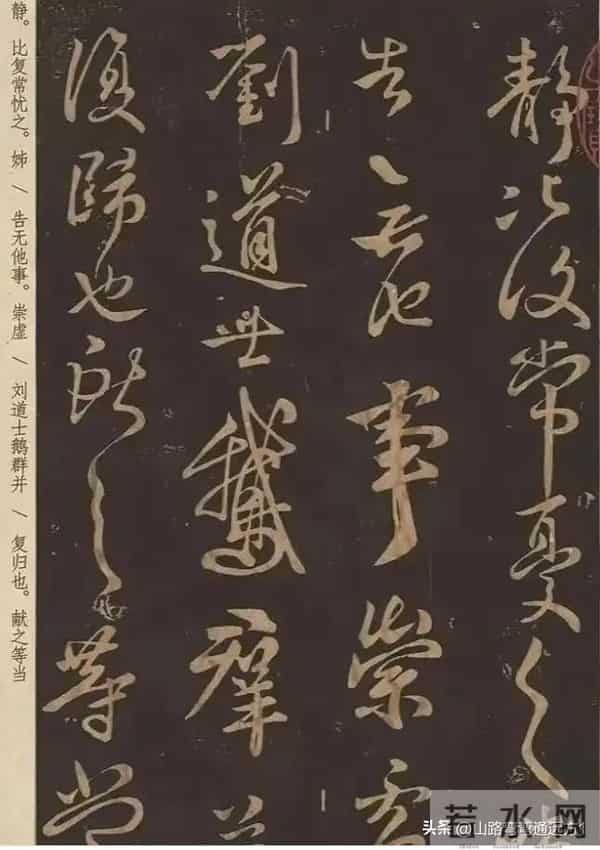 靜比復常憂之
告無他事崇虛
劉道士鵝群並
復歸也獻之等當
静。比复常忧之。姊 / 告无他事。崇虚 / 刘道士鹅群并 / 复归也。献之等当
若水网
头条 @山路弯弯通远方